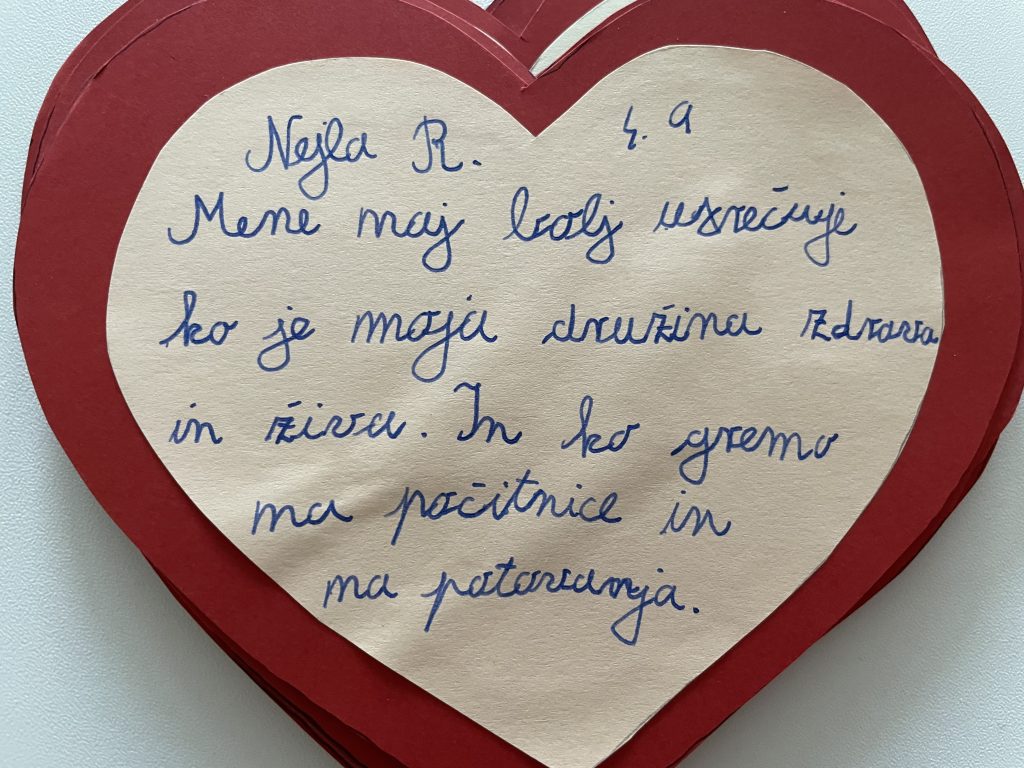 Nejla R. 4. a
Mene naj bolj usrečuje
ko je moja družina zdrava
in živa. In ko gremo
na počitnice in
na potovanja.